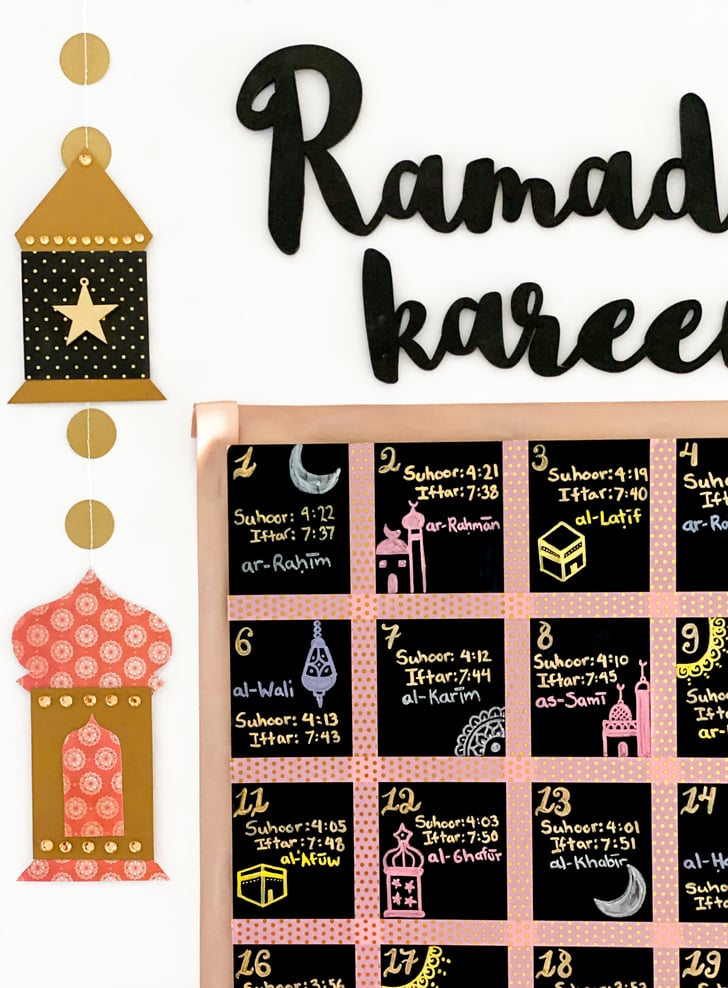 Ramad
karee
1
Suhoor: 4:22
Iftar: 7:37
ar-Raḥīm
2
Suhoor: 4:21
Iftar: 7:38
ar-Raḥmān
3
Suhoor: 4:19
Iftar: 7:40
al-Laṭīf
4
6
al-Wali
Suhoor: 4:13
Iftar: 7:43
7
Suhoor: 4:12
Iftar: 7:44
al-Karīm
8
Suhoor: 4:10
Iftar: 7:45
as-Samī
9
11
Suhoor: 4:05
Iftar: 7:48
al-'Afūw
12
Suhoor: 4:03
Iftar: 7:50
al-Ghafūr
13
Suhoor: 4:01
Iftar: 7:51
al-Khabīr
14
16
17
18
19